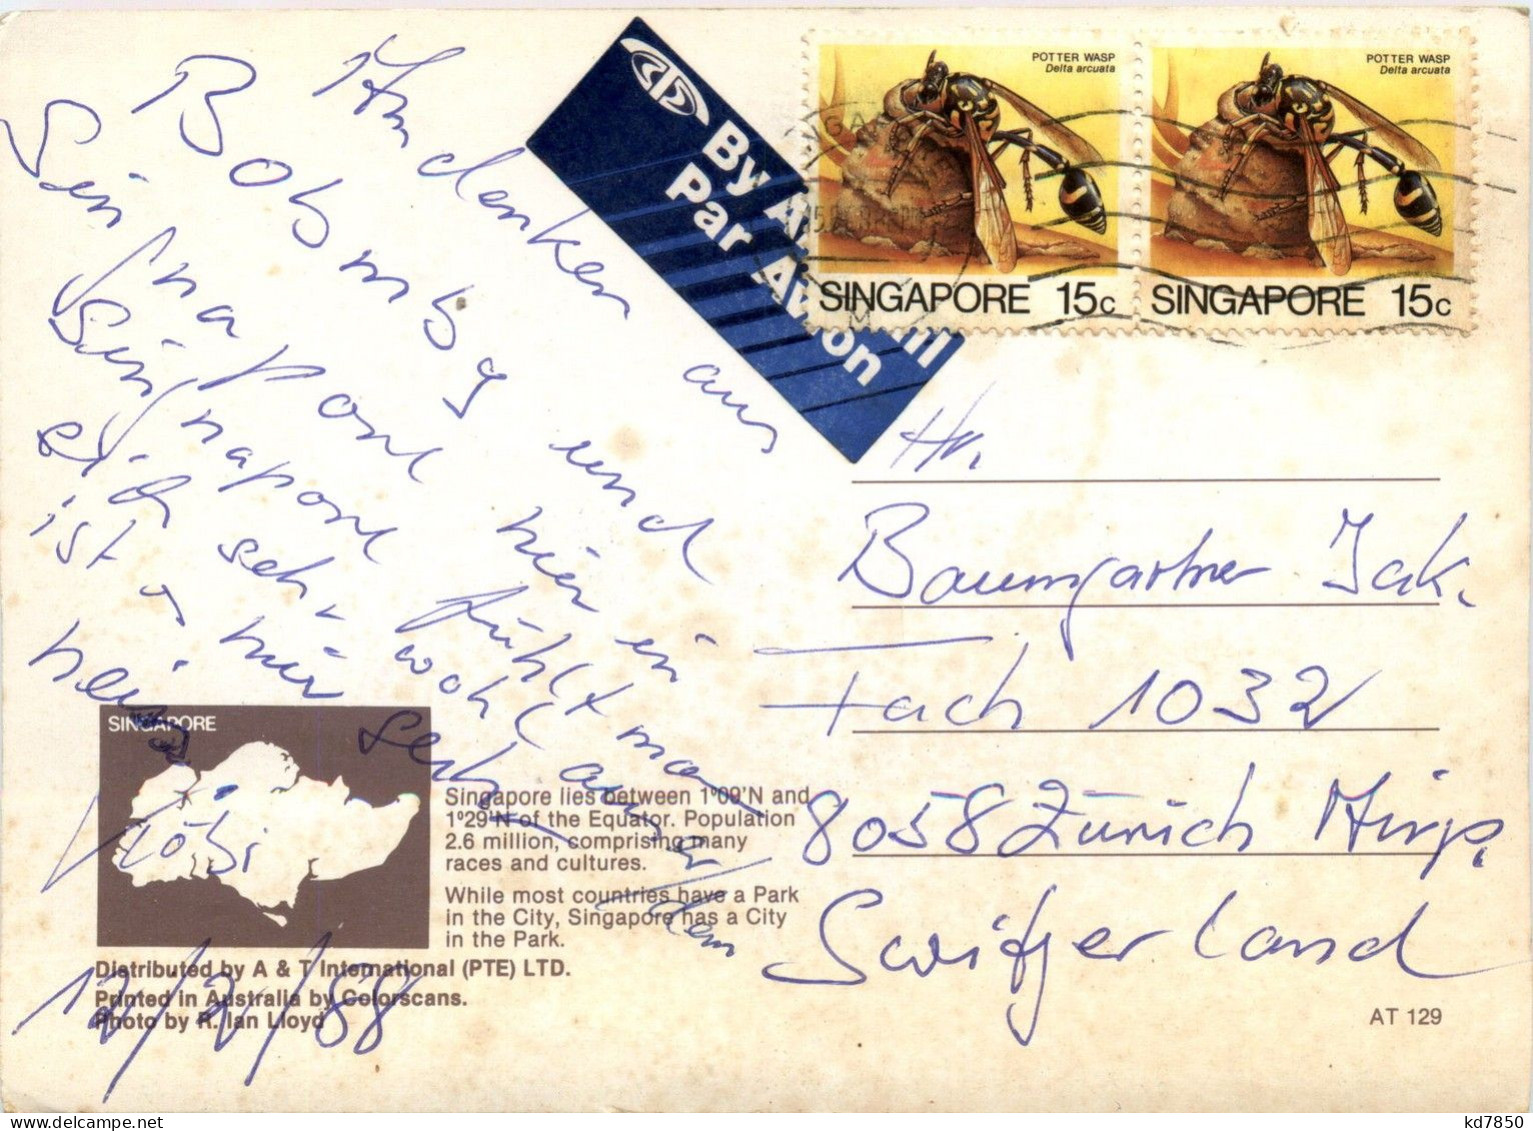 Andenken aus
Bobmbg und
Singapore hier in
Singapore fühlt man
sich sehr wohl auf dem
ist
hier sehr
Köbi
12/2/88
By Air Mail
Par Avion
POTTER WASP
Delta arcuata
SINGAPORE 15c
POTTER WASP
Delta arcuata
SINGAPORE 15c
Hr.
Baumgartner Jak.
Fach 1032
8058 Zürich
Switzerland
SINGAPORE
Singapore lies between 1°09'N and
1°29'N of the Equator. Population
2.6 million, comprising many
races and cultures.
While most countries have a Park
in the City, Singapore has a City
in the Park.
Distributed by A & T International (PTE) LTD.
Printed in Australia by Colorscans.
Photo by R. Ian Lloyd
AT 129
kd7850